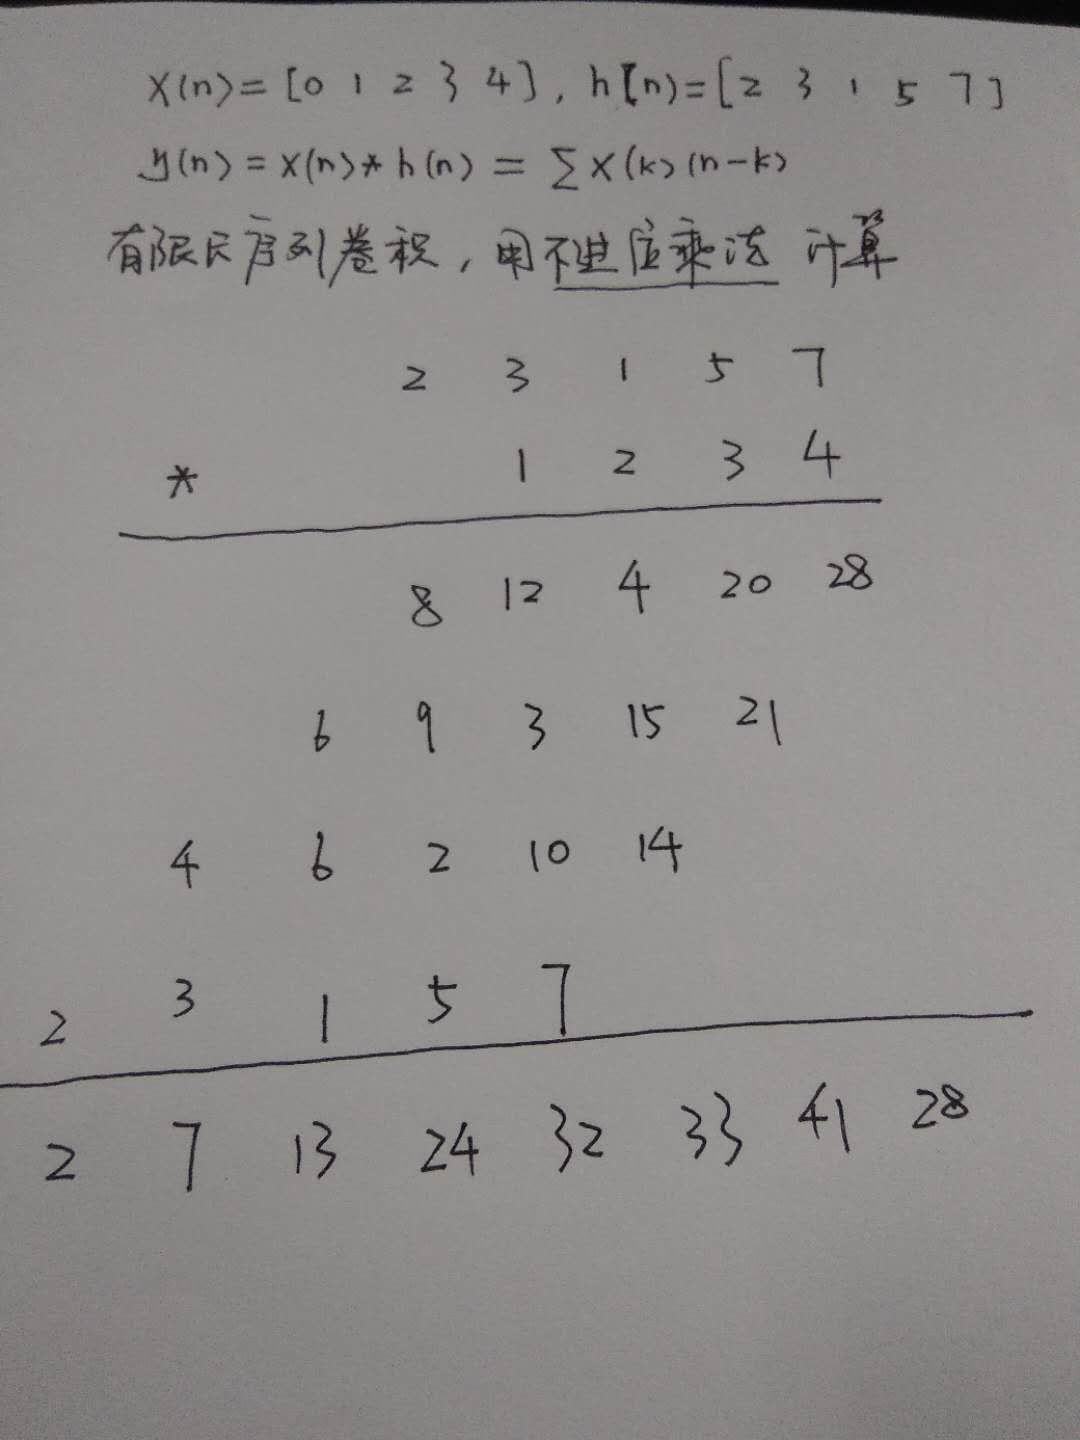 x(n)=[0 1 2 3 4], h[n)=[2 3 1 5 7]
y(n)=x(n)*h(n)=∑x(k)(n-k)
有限长序列卷积,用不进位乘法 计算
2 3 1 5 7
* 1 2 3 4
8 12 4 20 28
6 9 3 15 21
4 6 2 10 14
2 3 1 5 7
2 7 13 24 32 33 41 28